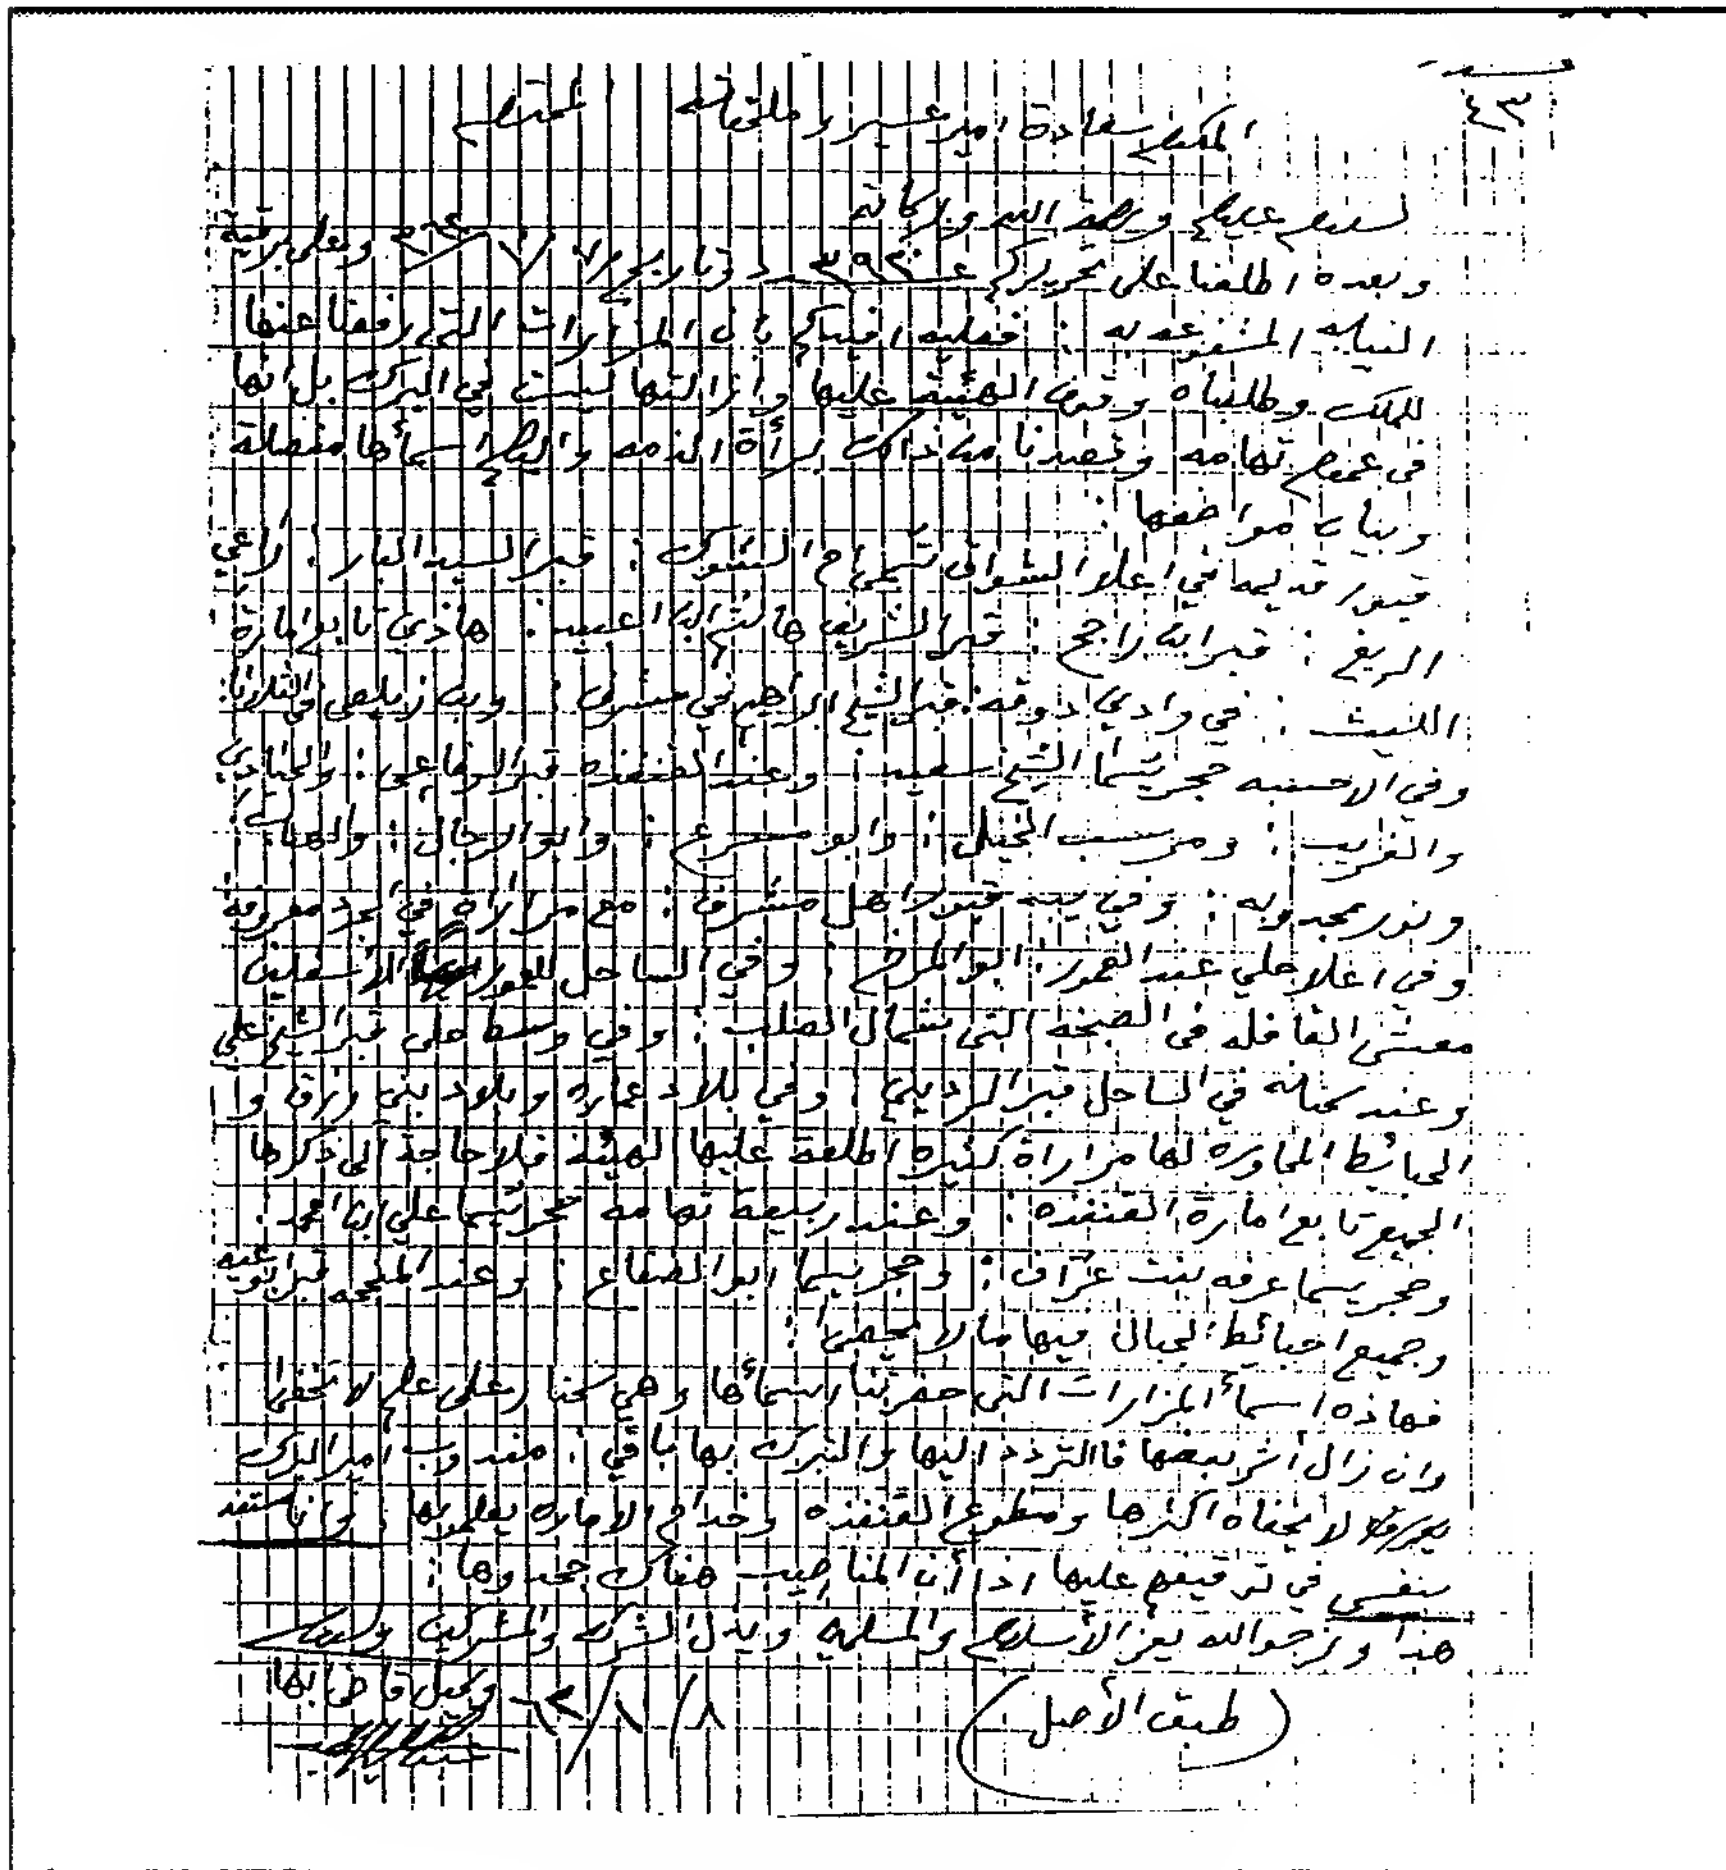 ٤٣
المكرم سعادة امير عسير وملحقاته المحترم
السلام عليكم ورحمة الله وبركاته
وبعده اطلعنا على تحريركم عـ ٣٩٢٠ وتاريخ وعلى برقية
النيابه : فعليه افيدكم بان المزارات التي رفعنا عنها
للملك وطلبناه وقوف الهيئة عليها وازالتها ليست في البرك بل انها
في عموم تهامه وقصدنا من ذالك برأة الذمه واليكم اسمأها مفصلة
وبيان مواضعها :
قبور قديمه في اعلا الشواق تسمى الشوك : قبر السيد البار : راعي
الريغ : قبر ابن راجح : قبر الشريف هاشم العبيد : هاذي تابع امارة
الليث : في وادي دوقه : قبر الشيخ ابراهيم في مشرف : وبن زيلعي في الثلاثا :
وفي الاحسبه حجر يسما الشيخ سعيد : وعند القنفذه قبر الرفاعي :
والغريب : ومرسب الخيل : وابو مسرع : وابو الرجال :
ونور بمجدوبه : وفي يبه قبور اهل مشرف : مع مزاراة في معروفة
وفي اعلا حلي عند العمور : ابو : وفي الساحل للعور الاسفلين
معشى القافله في الصبخه التي شمال الصلب : وفي وسط حلي قبر الشيخ علي
وعند كنانه في الساحل قبر : وفي بلاد عماره وبلاد بني زرق وا
الحبائط المجاوره لها مزاراة كثيره اطلعة عليها الهيئة فلا حاجة الى ذكرها
الجميع تابع امارة القنفذه : وعند ربيعة تهامه حجر يسما علي ابن امحمد :
وحجر يسما عرفه بنت عراف : وحجر يسما ابو الصقاع : وعند قبر ابو
وجميع احبائط الجبال فيها ما لا يحصى :
فهاذه اسمأ المزارات التي حضرتنا اسمأها وهي كنار على علم لا تخفى
وان زال أثر بعضها فالتردد اليها والتبرك بها باقي : مندوب امير البرك
يعرفها لا يخفاه اكثرها ومطوع القنفذه وخدام الاماره يعلمو بها : وانا مستعد
بنفسي في ترقيفهم عليها اذا أن المناصيب هناك جحدوها :
هذا ونرجو الله يعز الأسلام والمسلمين ويذل الشرك والمشركين والسلام
طبق الأصل ٨/٨/٦٣ وكيل قاضي بها